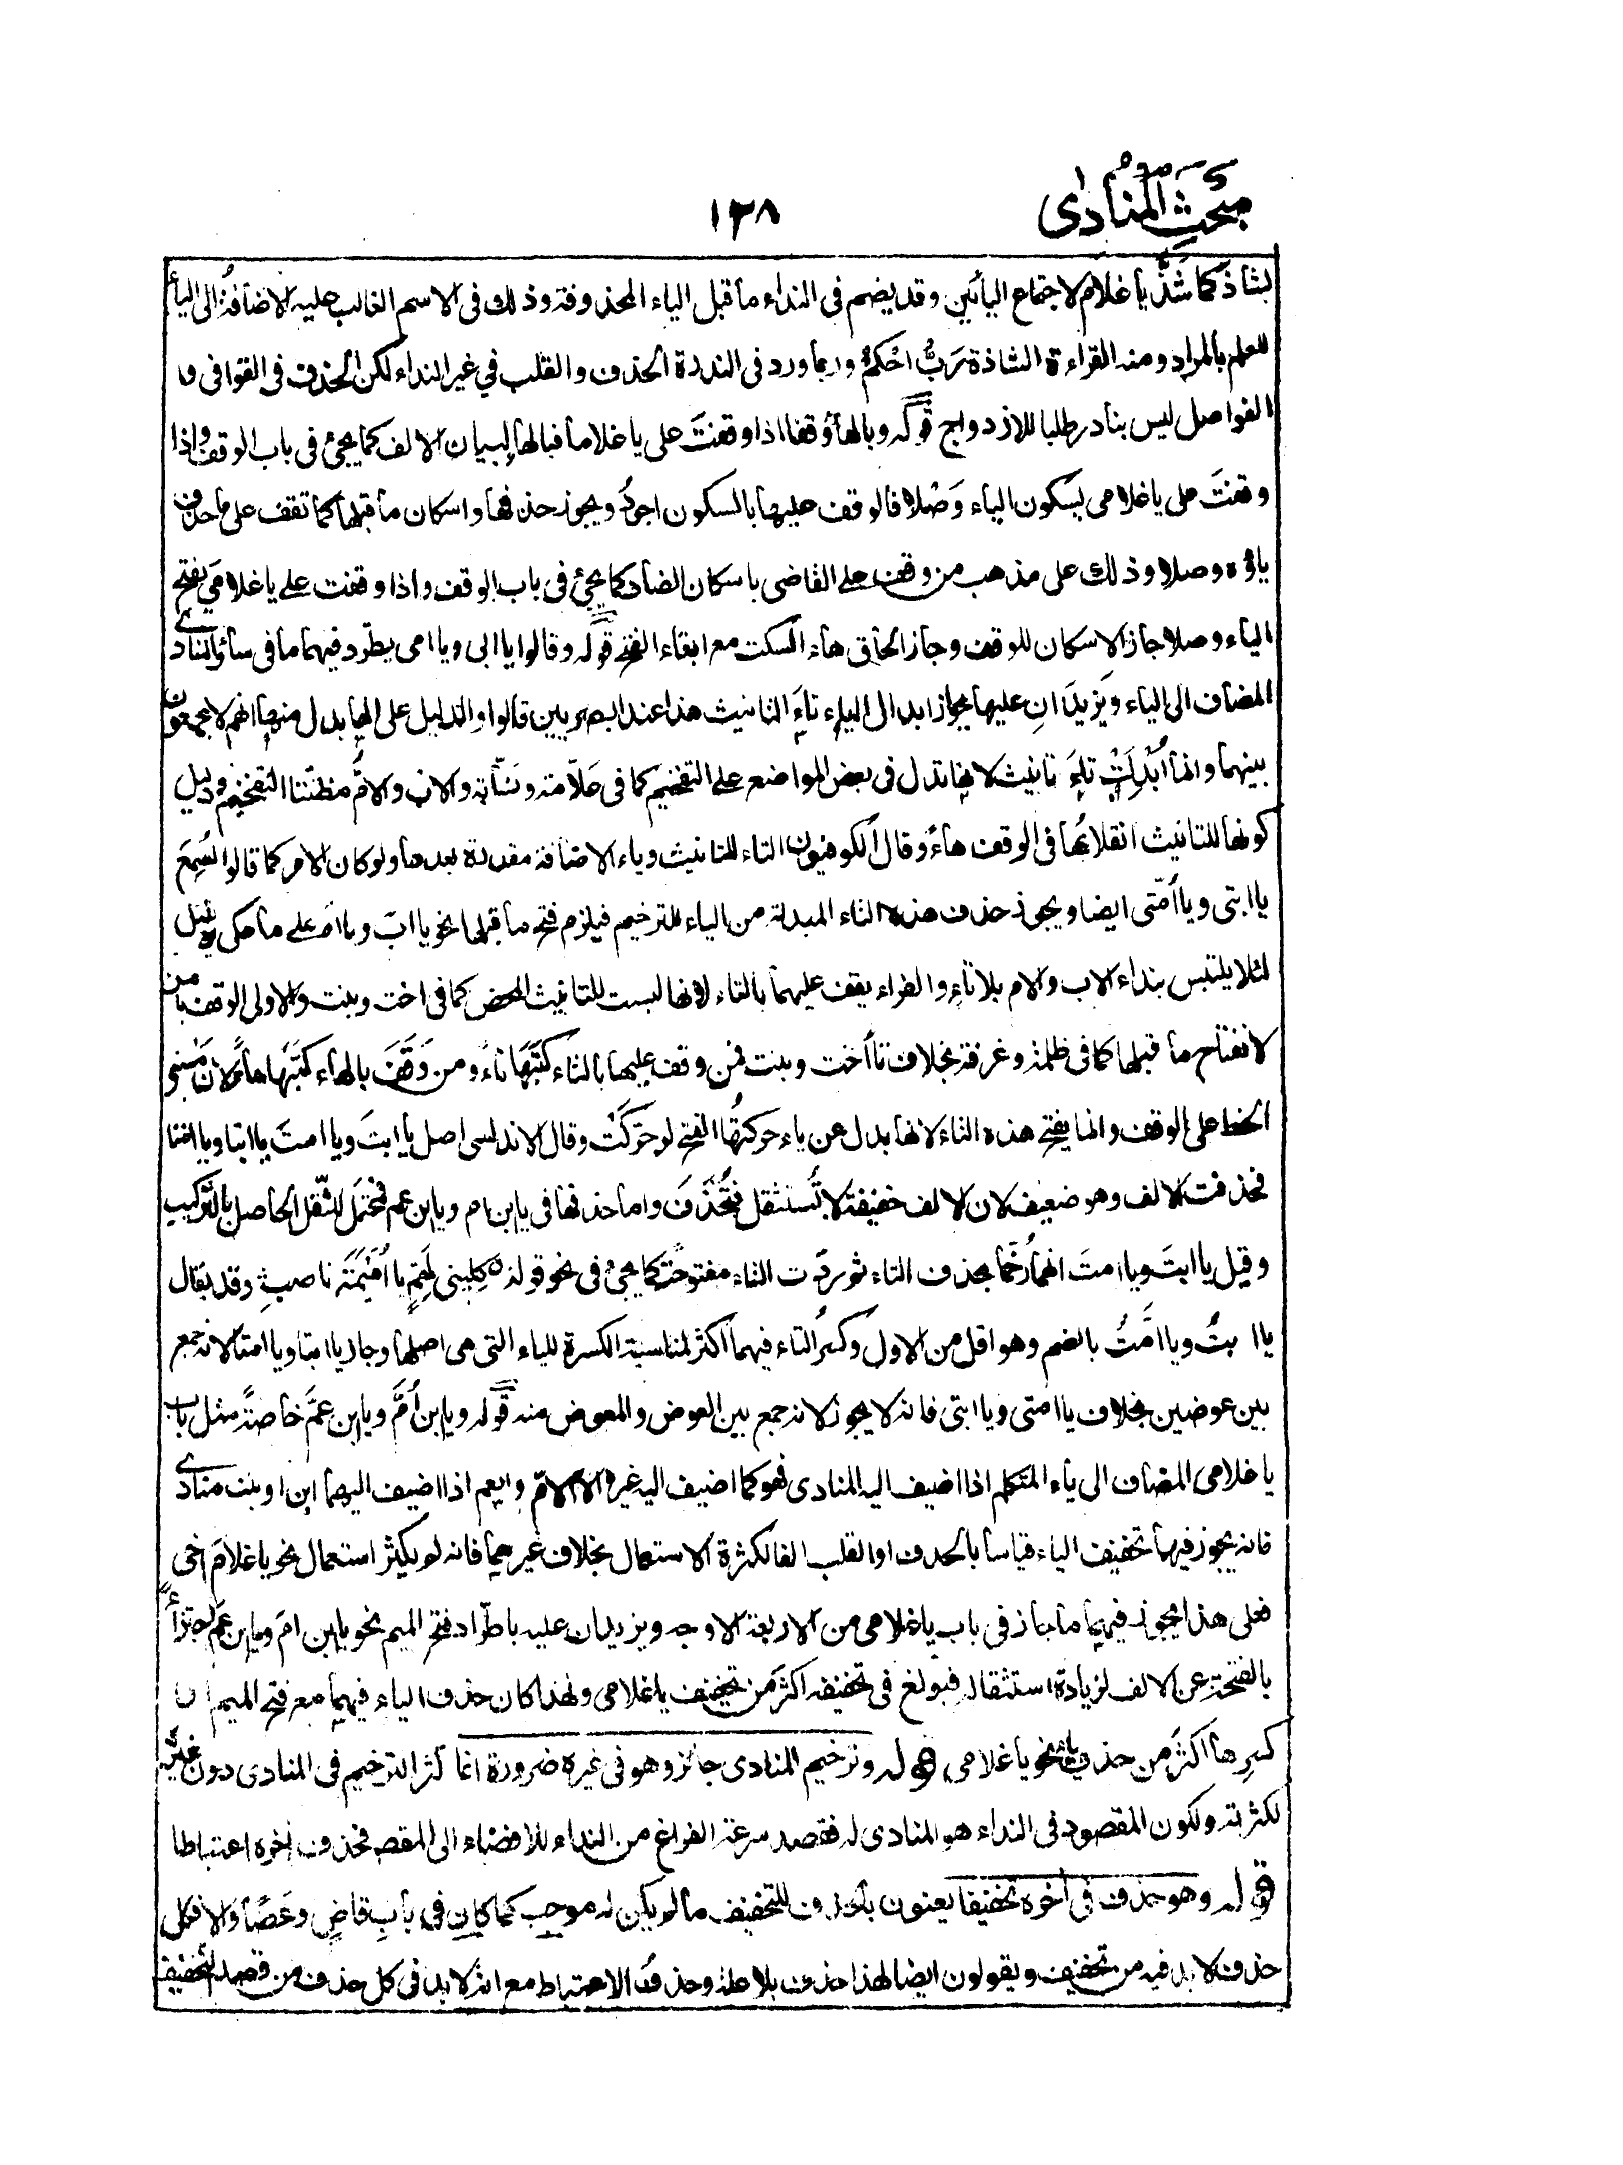 مبحث المنادى
١٣٨
بشاذ كما شذ يا غلام لاجتماع اليائين وقد يضم فى النداء ما قبل الياء المحذوفة وذلك فى الاسم الغالب عليه الاضافة الى الياء
للعلم بالمراد ومنه القراءة الشاذة رَبُّ احْكُمْ وربما ورد فى الندرة الحذف والقلب في غير النداء لكن الحذف فى القوافى و
الفواصل ليس بنادر طلبا للازدواج قوله وبالهاء وقفا اذا وقفتَ على يا غلاما فبالهاء لبيان الالف كما يجئ فى باب الوقف واذا
وقفتَ على يا غلامى بسكون الياء وَصْلا فالوقف عليها بالسكون اجود ويجوز حذفها واسكان ما قبلها كما تقف على ما حذف
ياؤه وصلا وذلك على مذهب من وقف على القاضى باسكان الضاد كما يجئ فى باب الوقف واذا وقفت على يا غلاميَ بفتح
الياء وصلا جاز الاسكان للوقف وجاز الحاق هاء السكت مع ابقاء الفتح قوله وقالوا يا ابى ويا امى يطّرد فيهما ما فى سائر المنادى
المضاف الى الياء ويَزيدَانِ عليها بجواز ابدال الياء تاءَ التانيث هذا عند البصريين قالوا والدليل على انها بدل منها انهم لا يجمعون
بينهما وانما اُبْدِلَتْ تاءَ تانيث لانها تدل فى بعض المواضع على التفخيم كما فى علّامة ونسّابة والاب والامّ مظنّتا التفخيم ودليل
كونها للتانيث انقلابُها فى الوقف هاءً وقال الكوفيون التاء للتانيث وياء الاضافة مقدرة بعدها ولو كان الامر كما قالوا لسُمِعَ
يا ابتى ويا اُمّتى ايضا ويجوز حذف هذه التاء المبدلة من الياء للترخيم فيلزم فتح ما قبلها نحو يا ابَ ويا امَّ على ما حكى يونس
لئلا يلتبس بنداء الاب والام بلا تاءٍ والفراء يقف عليهما بالتاء لانها ليست للتانيث المحض كما فى اخت وبنت والاولى الوقف بالهاء
لانفتاح ما قبلها كما فى ظلمة وغرفة بخلاف تاء اُخت وبنت فمن وقف عليها بالتاء كَتَبَهَا تاءً ومن وَقَفَ بالهاء كَتَبَها هاءً لان مبنى
الخط على الوقف وانما يفتح هذه التاء لانها بدل عن ياء حركتُها الفتح لو حرّكتْ وقال الاندلسى اصل يا ابتَ ويا امتَ يا ابتا ويا امّتا
فحذفت الالف وهو ضعيف لان الالف خفيفة لا تُستثقل فتُحْذَفَ واما حذفها فى يا ابن ام ويا ابن عم فيحتمل للثقل الحاصل بالتركيب
وقيل يا ابتَ ويا امتَ انهما رُخّما بحذف التاء ثم ردّت التاء مفتوحة كما يجئ فى نحو قوله كِلِينى لِهَمٍّ يا اُمَيْمَةَ ناصبِ وقد يقال
يا ابتُ ويا امّتُ بالضم وهو اقل من الاول وكسر التاء فيهما اكثر لمناسبة الكسرة للياء التى هى اصلها وجاز يا ابتا ويا امتا لانه جمع
بين عوضين بخلاف يا امتى ويا ابتى فانه لا يجوز لانه جمع بين العوض والمعوض منه قوله ويا ابن اُمَّ ويا ابن عمَّ خاصةً مثل باب
يا غلامى المضاف الى ياء المتكلم اذا اضيف اليه المنادى فهو كما اضيف اليه غيره الا الامّ والعم اذا اضيف اليهما ابن او بنت منادى
فانه يجوز فيهما تخفيف الياء قياسا بالحذف او القلب الفا لكثرة الاستعمال بخلاف غيرهما فانه لم يكثر استعمال نحو يا غلامَ اخى
فعلى هذا يجوز فيهما ما جاز فى باب يا غلامى من الاربعة الاوجه ويزيدان عليه باطّراد فتح الميم نحو يا ابن امَّ ويا ابن عمَّ اجتزاءً
بالفتحة عن الالف لزيادة استثقاله فبولغ فى تخفيفه اكثرَ من تخفيف يا غلامى ولهذا كان حذف الياء فيهما مع فتح الميم او
كسرها اكثرَ من حذف ياء نحو يا غلامى قوله وترخيم المنادى جائز وهو فى غيره ضرورة انما كثر الترخيم فى المنادى دون غيره
لكثرته ولكون المقصود فى النداء هو المنادى له فقصد سرعة الفراغ من النداء للافضاء الى المقصد فحذف اخره اعتباطا
قوله وهو حذف فى اخره تخفيفا يعنون بالحذف للتخفيف ما لم يكن له موجب كما كان فى بابِ قاضٍ وعَصًا والا فكل
حذف لا بد فيه من تخفيف ويقولون ايضا لهذا حذف بلا علة وحذفُ الاعتباط مع انه لا بد فى كل حذف من قصد التخفيف